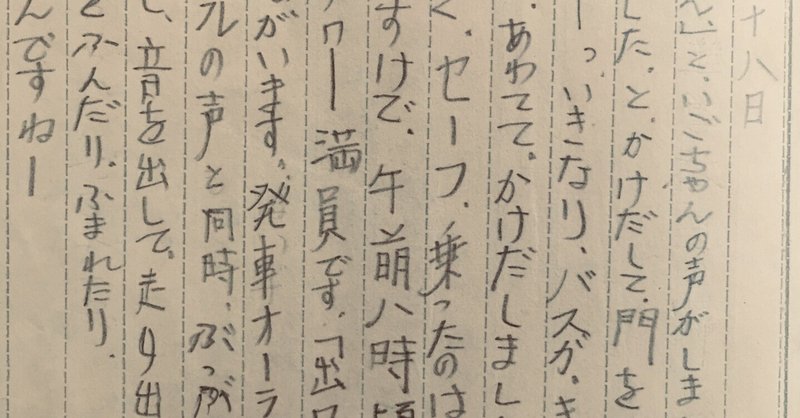 十八日
ん」と、いごちゃんの声がしま
した。と、かけだして、門を
ーっ、いきなり、バスが、き
。あわてて。かけだしまし
く、セーフ、乗ったのは
すけで、午前八時頃
ワー満員です。「出ワ
がいます。発車オーラ
ルの声と同時、ぶっぶ
し、音を出して。走り出
とふんだり、ふまれたり、
んですねー